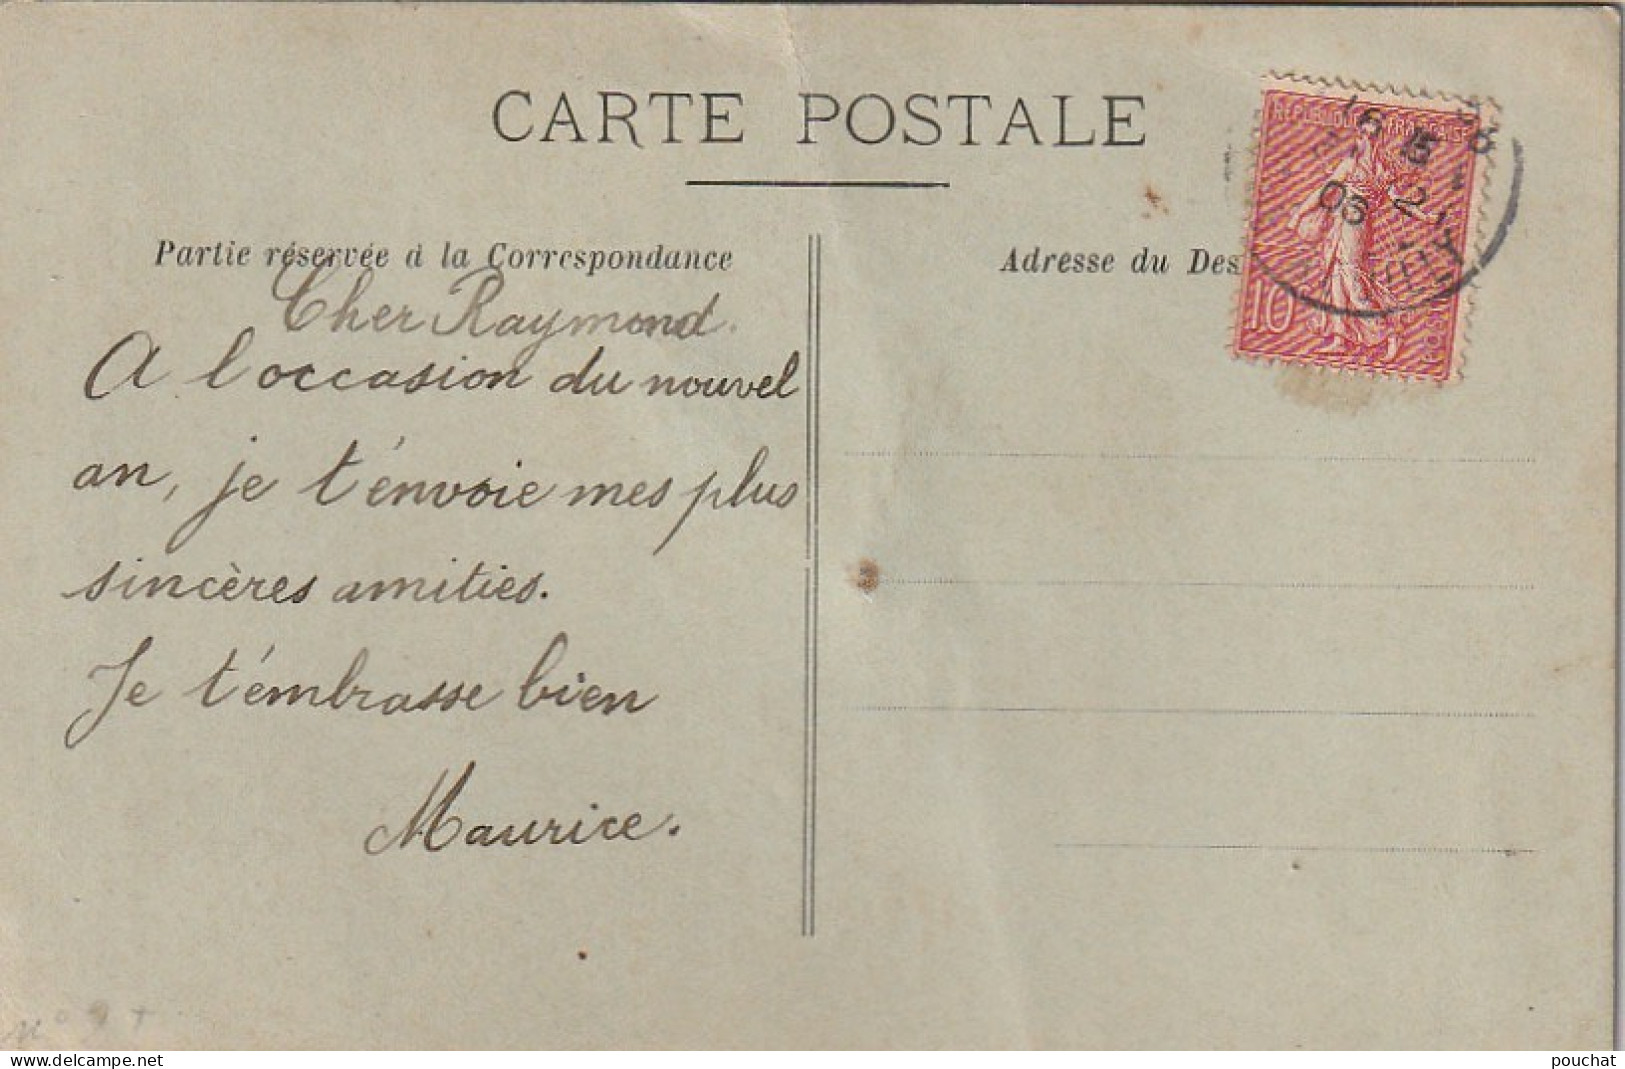 CARTE POSTALE
Partie réservée à la Correspondance
Cher Raymond.
A l'occasion du nouvel
an, je t'énvoie mes plus
sincères amitiés.
Je t'émbrasse bien
Maurice.
Adresse du Des
REPUBLIQUE FRANÇAISE
10
POSTES
15
06
www.delcampe.net
pouchat